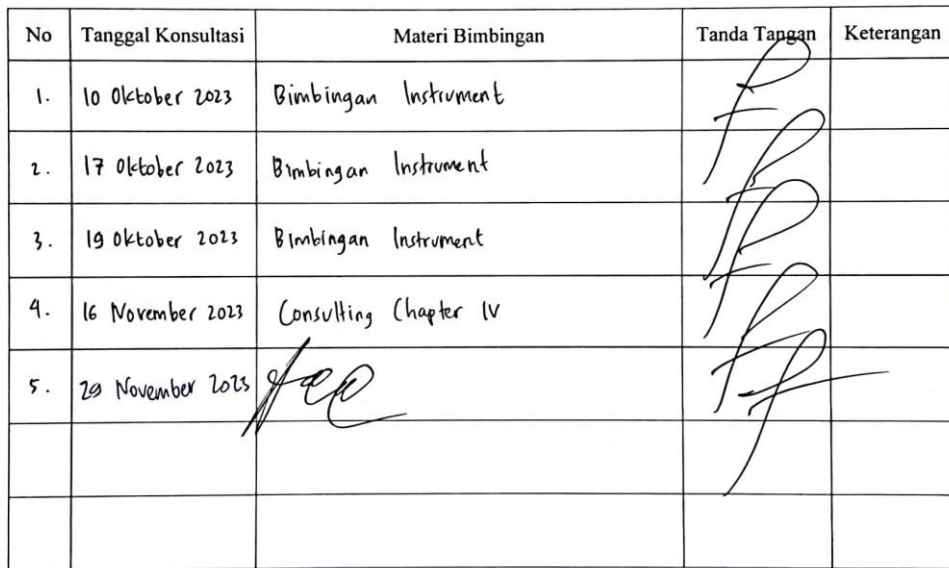 No Tanggal Konsultasi Materi Bimbingan Tanda Tangan Keterangan
1. 10 Oktober 2023 Bimbingan Instrument
2. 17 Oktober 2023 Bimbingan Instrument
3. 19 Oktober 2023 Bimbingan Instrument
4. 16 November 2023 Consulting Chapter IV
5. 29 November 2023